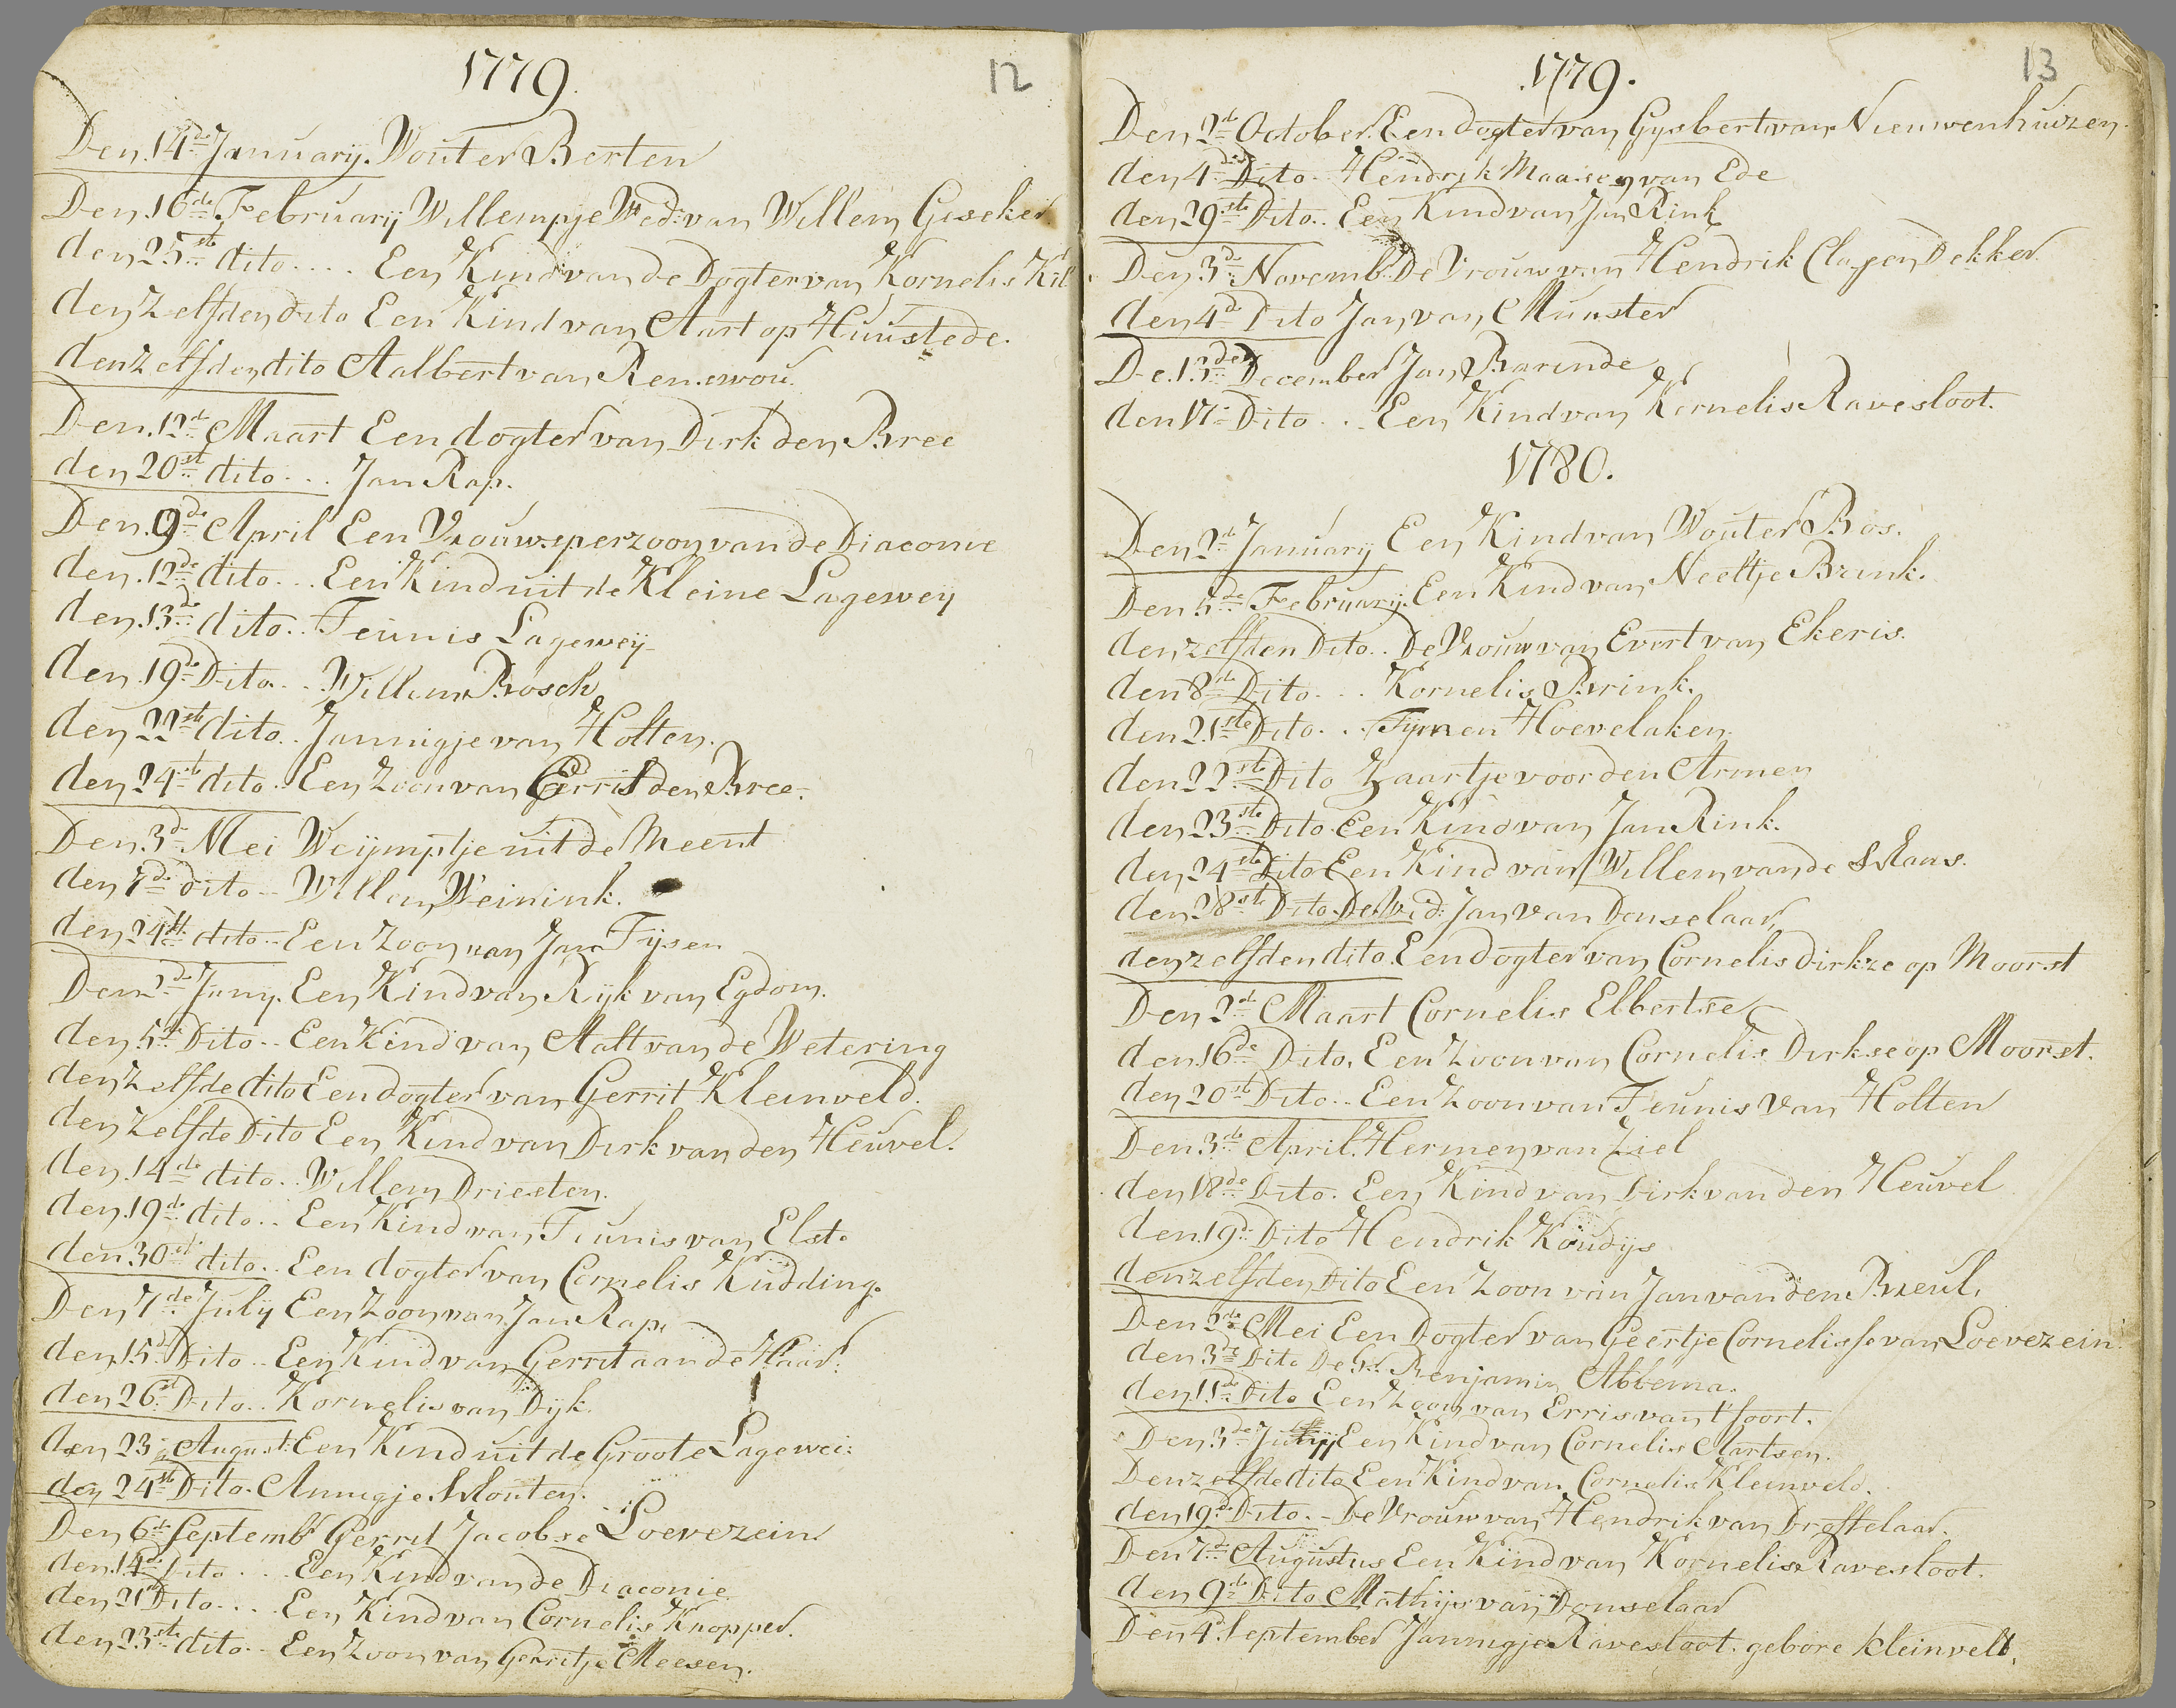 1779.
12
Den 14de January. Wouter Berten
Den 16de February Willempje Wed: van Willem Giseker
den 25ste dito.... Een Kind van de Dogter van Kornelis Kil
den Zelfden dito Een Kind van Aart op Huustede.
den Zelfden dito Aalbert van Renswou.
Den 12de Maart Een dogter van Dirk den Bree
den 20ste dito... Jan Rap.
Den 9de April Een Vrouwsperzoon van de Diaconie
den 12de dito... Een Kind uit de Kleine Lagewey
den 13de dito.. Teunis Lagewey
den 19de Dito... Willem Bosch
den 22ste dito.. Jannigje van Holten.
den 24ste dito. Een Zoon van Gerrit den Bree.
Den 3de Mei Weijmptje uit de Meent
den 7de dito.. Willem Weinink.
den 24ste dito.. Een Zoon van Jan Tijsen
Den 2de Juny. Een Kind van Rijk van Egdom.
den 5de Dito.. Een Kind van Aalt van de Wetering
den Zelfde dito Een dogter van Gerrit Kleinveld.
den Zelfde Dito Een Kind van Dirk van den Heuvel.
den 14de dito.. Willem Driesten.
den 19de dito.. Een Kind van Teunis van Elst.
den 30ste dito.. Een dogter van Cornelis Kudding.
Den 7de July Een Zoon van Jan Rap.
den 15de Dito.. Een Kind van Gerrit aan de Haar.
den 26st Dito.. Kornelis van Dijk.
den 23 August: Een Kind uit de Groote Lagewei:
den 24ste Dito. Annigje Wouten.
Den 6de Septemb Gerrit Jacobse Loevezein
den 14de Dito.... Een Kind van de Diaconie
den 21st Dito.... Een Kind van Cornelis Knopper.
den 23ste dito.. Een Zoon van Gerritje Meesen.
1779.
13
Den 2de October. Een dogter van Gysbert van Nieuwenhuizen.
den 4de Dito.. Hendrik Maasen van Ede
den 29ste Dito.. Een Kind van Jan Rink
Den 3de Novemb. De Vrouw van Hendrik Clasen Dekker
den 4de Dito Jan van Munster
De 13den December Jan Barinde
den 17 Dito... Een Kind van Kornelis Ravesloot.
1780.
Den 2de January Een Kind van Wouter Bos.
Den 5de February. Een Kind van Neeltje Brink.
den zelfden Dito.. De Vrouw van Evert van Ekeris.
den 8ste Dito... Kornelis Brink.
den 21ste Dito... Tijmen Hoevelaken.
den 22ste Dito Zaartje voor den Armen
den 23ste Dito. Een Kind van Jan Rink.
den 24ste Dito Een Kind van Willem van de Maas.
den 28ste Dito. De Wed: Jan van Donselaar,
den zelfden dito. Een dogter van Cornelis Dirkze op Moorst
Den 2de Maart Cornelis Elbertse
den 16de Dito. Een Zoon van Cornelis Dirkse op Moorst.
den 20ste Dito.. Een Zoon van Teunis van Holten
Den 3de April. Hermen van Ziel
den 18de Dito. Een Kind van Dirk van den Heuvel
den 19de Dito Hendrik Koudijs
den zelfden Dito Een Zoon van Jan van den Breul.
Den 2de Mei Een Dogter van Geertje Cornelisse van Loevezein.
den 3de Dito De Hr. Benjamin Abbema.
den 11de Dito Een Zoon van Erris van 't foort.
Den 3de July Een Kind van Cornelis Aartsen.
Den zelfde dito Een Kind van Cornelis Kleinveld.
den 19de Dito.. De Vrouw van Hendrik van Droffelaar.
Den 7de Augustus Een Kind van Kornelis Ravesloot.
den 9de Dito Mathijs van Donselaar
Den 4de September Jannigje Ravesloot. gebore Kleinvelt,